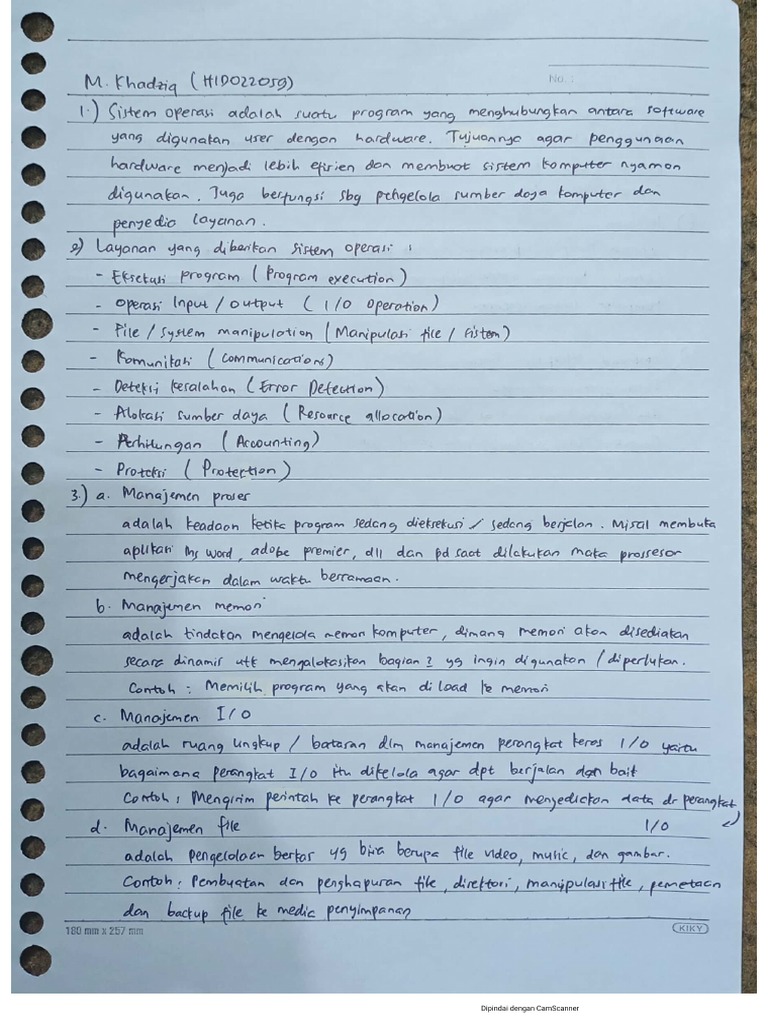 No. :
M. Khadziq (H1D022059)
1.) Sistem operasi adalah suatu program yang menghubungkan antara software
yang digunakan user dengan hardware. Tujuannya agar penggunaan
hardware menjadi lebih efisien dan membuat sistem komputer nyaman
digunakan. Juga berfungsi sbg pengelola sumber daya komputer dan
penyedia layanan.
2) Layanan yang diberikan sistem operasi :
- Eksekusi program (Program execution)
- Operasi Input / Output ( I/O Operation)
- File / system manipulation (Manipulasi file / sistem)
- Komunikasi (Communications)
- Deteksi kesalahan (Error Detection)
- Alokasi sumber daya (Resource allocation)
- Perhitungan (Accounting)
- Proteksi (Protection)
3.) a. Manajemen proses
adalah keadaan ketika program sedang dieksekusi / sedang berjalan. Misal membuka
aplikasi Ms Word, adobe premier, dll dan pd saat dilakukan maka prossesor
mengerjakan dalam waktu bersamaan.
b. Manajemen memori
adalah tindakan mengelola memori komputer, dimana memori akan disediakan
secara dinamis utk mengalokasikan bagian2 yg ingin digunakan / diperlukan.
Contoh : Memilih program yang akan di load ke memori
c. Manajemen I/O
adalah ruang lingkup / batasan dlm manajemen perangkat keras I/O yaitu
bagaimana perangkat I/O itu dikelola agar dpt berjalan dgn baik
Contoh : Mengirim perintah ke perangkat I/O agar menyediakan data dr perangkat
I/O
d. Manajemen file
adalah pengelolaan berkas yg bisa berupa file video, music, dan gambar.
Contoh : Pembuatan dan penghapusan file, direktori, manipulasi file, pemetaan
dan backup file ke media penyimpanan
180 mm x 257 mm
KIKY
Dipindai dengan CamScanner